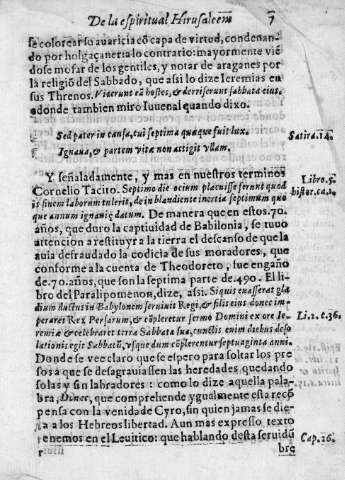 De la espiritual Hirusaleem 7
se colorear so auaricia cõ capa de virtud, condenan-
do por holgaçaneria lo contrario: mayormente vié
dose mofar de los gentiles, y notar de araganes por
la religiõ del Sabbado, que assi lo dize Ieremias en
sus Threnos. Viderunt eã hostes, & derriserunt sabbata eius.
adonde tambien miro Iuuenal quando dixo.
Sed pater in causa, cui septima quæque fuit lux. Satira.14.
Ignaua, & partem vitæ non attigit vllam.
Y señaladamente, y mas en nuestros terminos Libro.5.
Cornelio Tacito. Septimo die ocium placuisse ferunt quod histor.ca.1.
is finem laborum tulerit, dein blandiente inertia septimum quo
que annum ignauiæ datum. De manera que en estos.70.
años, que duro la captiuidad de Babilonia, se tuuo
attencion a restituyr a la tierra el descanso de que la
auia desfraudado la codicia de sus moradores, que
conforme a la cuenta de Theodoreto, fue engaño
de.70.años, que son la septima parte de.490. El li-
bro del Paralipomenon, dize, assi. Si quis euasserat gla
dium ductus in Babylonem seruiuit Regi, & filiis eius donec im-
peraret Rex Persarum, & cõpleretur sermo Domini ex ore Ie- Li.2.c.36.
remiæ & celebraret terra Sabbata sua, cunctis enim diebus deso
lationis egit Sabbatũ, vsque dum cõplerentur septuaginta anni.
Donde se vee claro que se espero para soltar los pre
sos a que se desagrauiassen las heredades quedando
solas y sin labradores: como lo dize aquella pala-
bra, Donec, que comprehende ygualmente esta recõ
pensa con la venida de Cyro, sin quien jamas se die-
ra a los Hebreos libertad. Aun mas expresso texto
tenemos en el Leuitico: que hablando desta seruidũ Cap.26.
bre